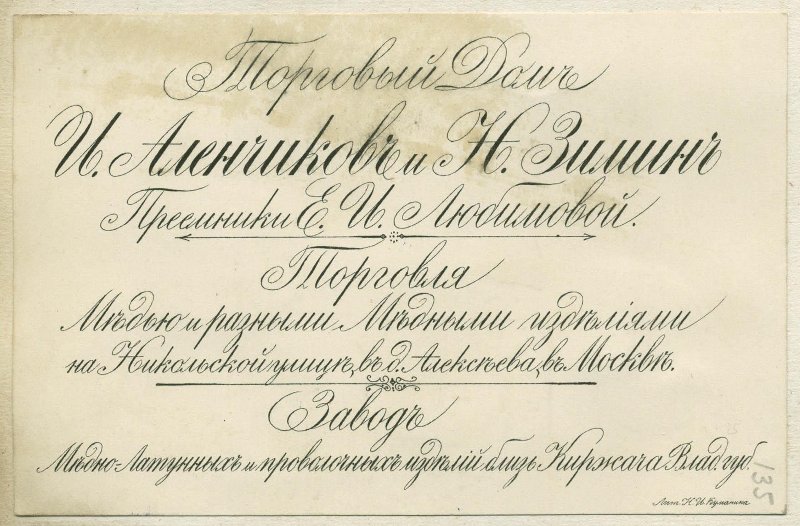 Торговый Домъ
И. Аленчиковъ и Н. Зиминъ
Преемники Е. И. Любимовой.
Торговля
Мѣдью и разными Мѣдными издѣліями
на Никольской улицѣ, въ д. Алексѣева, въ Москвѣ.
Заводъ
Мѣдно-Латунныхъ и проволочныхъ издѣлій близь Киржача Влад. губ.
Лит. Н. И. Куманина
135